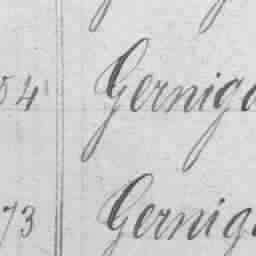 54 Gerniga
73 Gernig